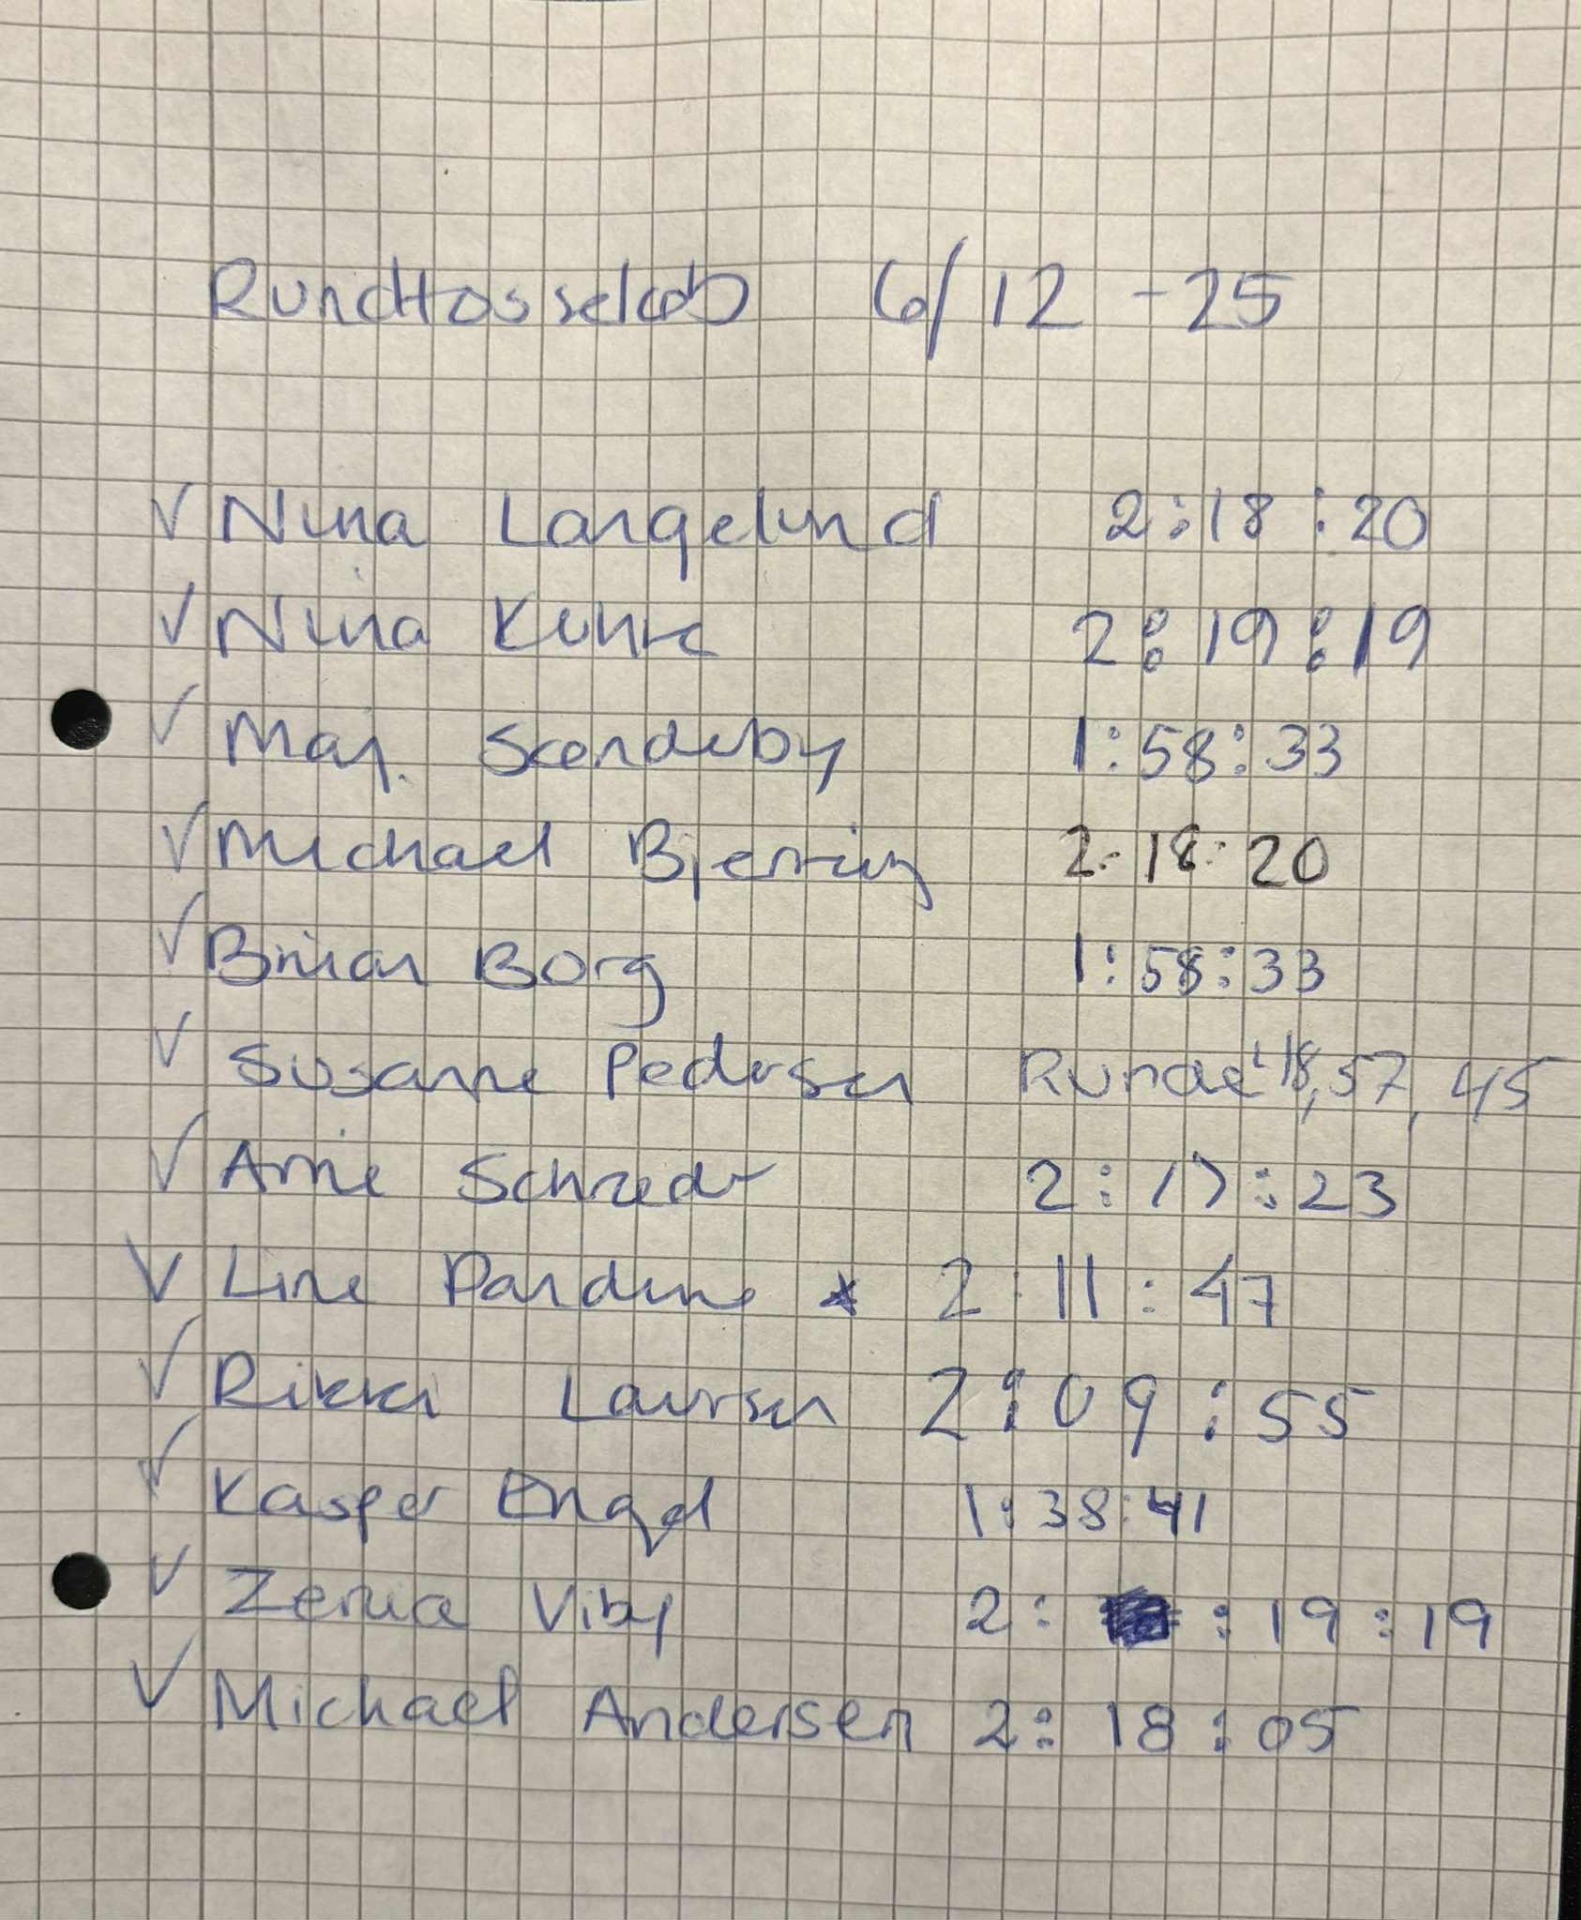 Rundtosseløb 6/12 - 25
✓ Nina Langelund 2:18:20
✓ Nina Kuhre 2:19:19
✓ Maj. Sønderby 1:58:33
✓ Michael Bjerring 2:18:20
✓ Brian Borg 1:58:33
✓ Susanne Pedersen Runde 18,57,45
✓ Arne Schrøder 2:17:23
✓ Line * 2:11:47
✓ Rikki Laursen 2:09:55
✓ Kasper Engel 1:38:41
✓ Viby 2: :19:19
✓ Michael Andersen 2:18:05